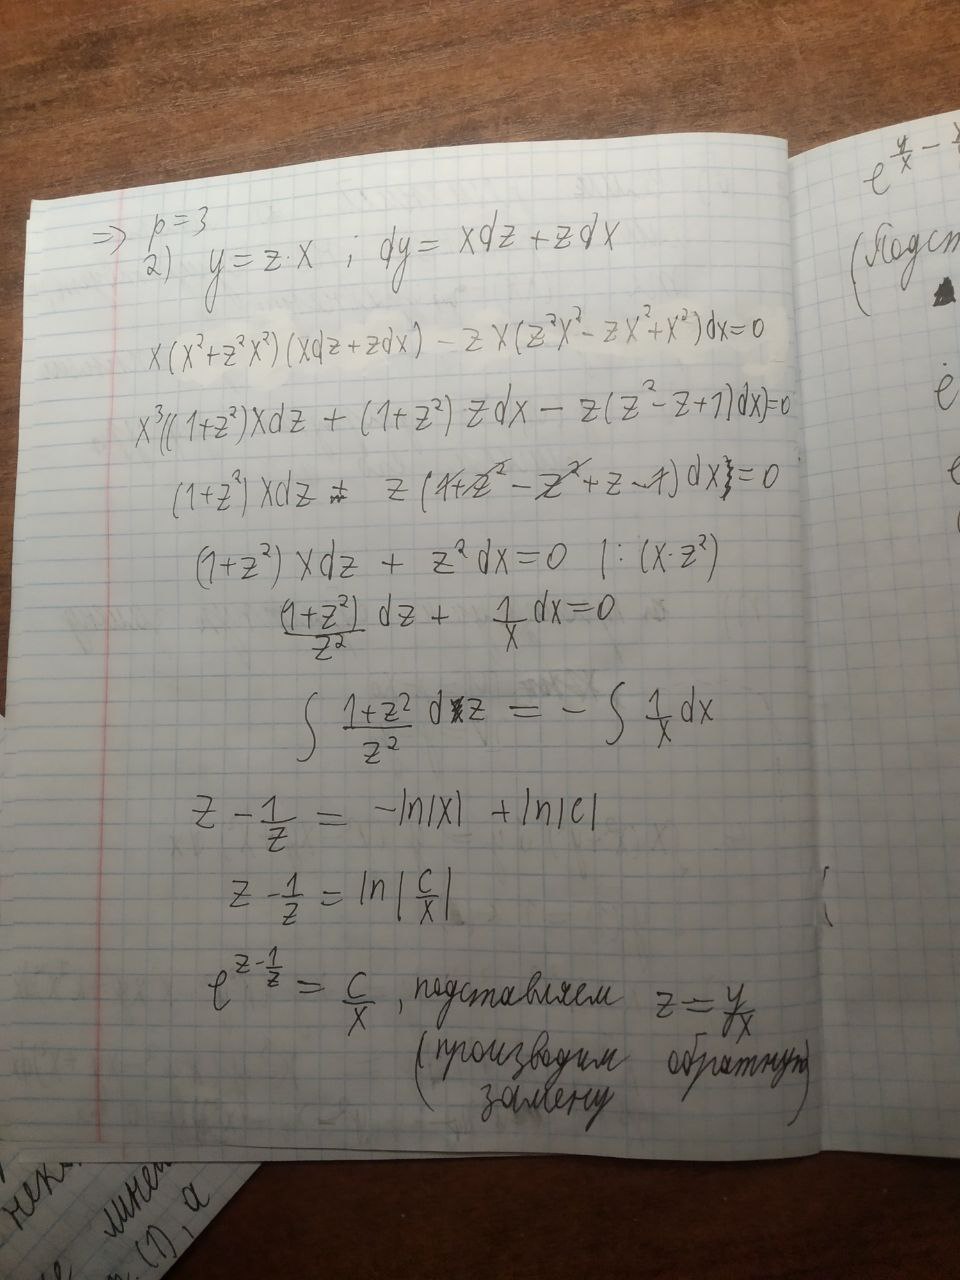 => p = 3
2) y = z·x ; dy = xdz + zdx
x(x²+z²x²)(xdz+zdx) - zx(z²x²-zx²+x²)dx=0
x³((1+z²)xdz + (1+z²)zdx - z(z²-z+1)dx)=0
(1+z²)xdz + z(1+z²-z²+z-1)dx=0
(1+z²)xdz + z²dx=0 |:(x·z²)
(1+z²)/z² dz + 1/x dx=0
∫ (1+z²)/z² dz = -∫ 1/x dx
z - 1/z = -ln|x| + ln|c|
z - 1/z = ln|c/x|
e^(z-1/z) = c/x, подставляем z = y/x
(производим обратную
замену)
e^(y/x -
(Подст
e
нек
линей
(1), а